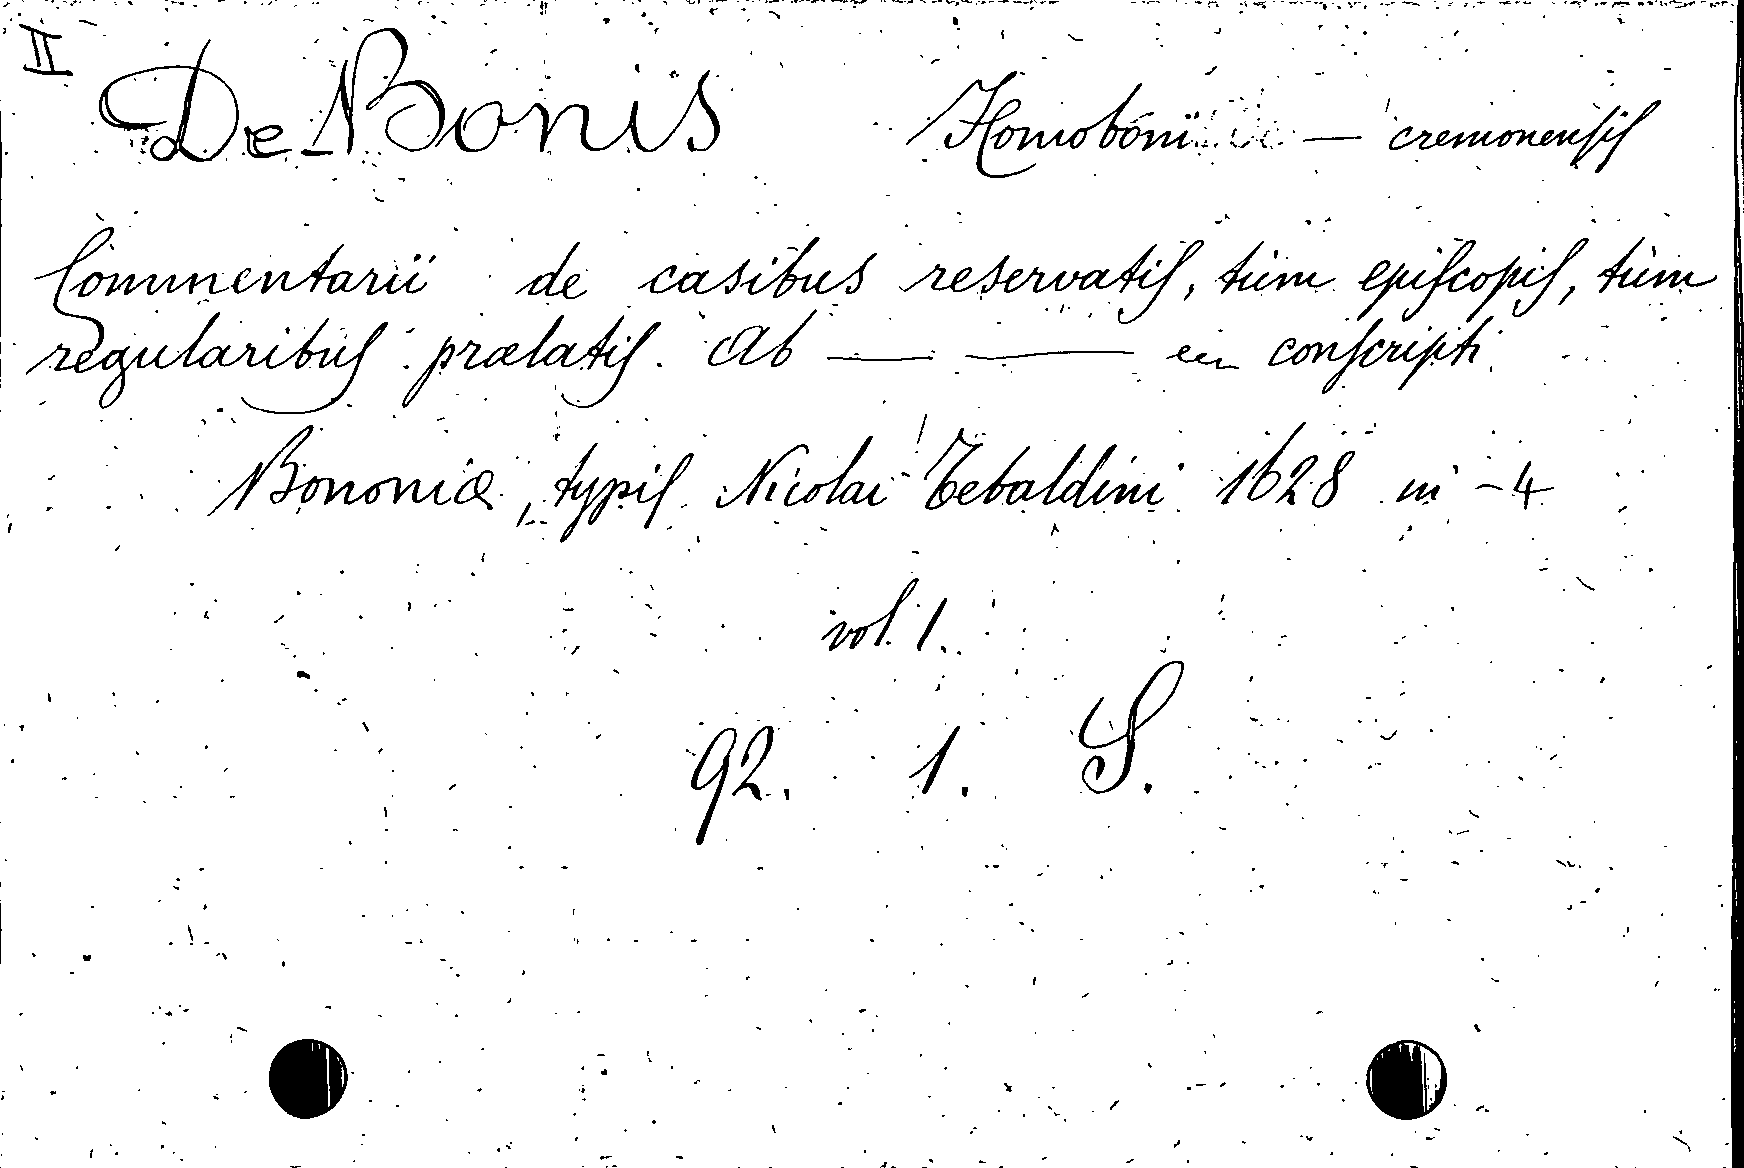 II
De Bonis Homoboni — cremonensis
Commentarii de casibus reservatis, tùm episcopis, tùm
regularibus prælatis. Ab — — conscripti
Bononiæ, typis Nicolai Tebaldini 1628 in -4
vol. 1.
92. 1. S.